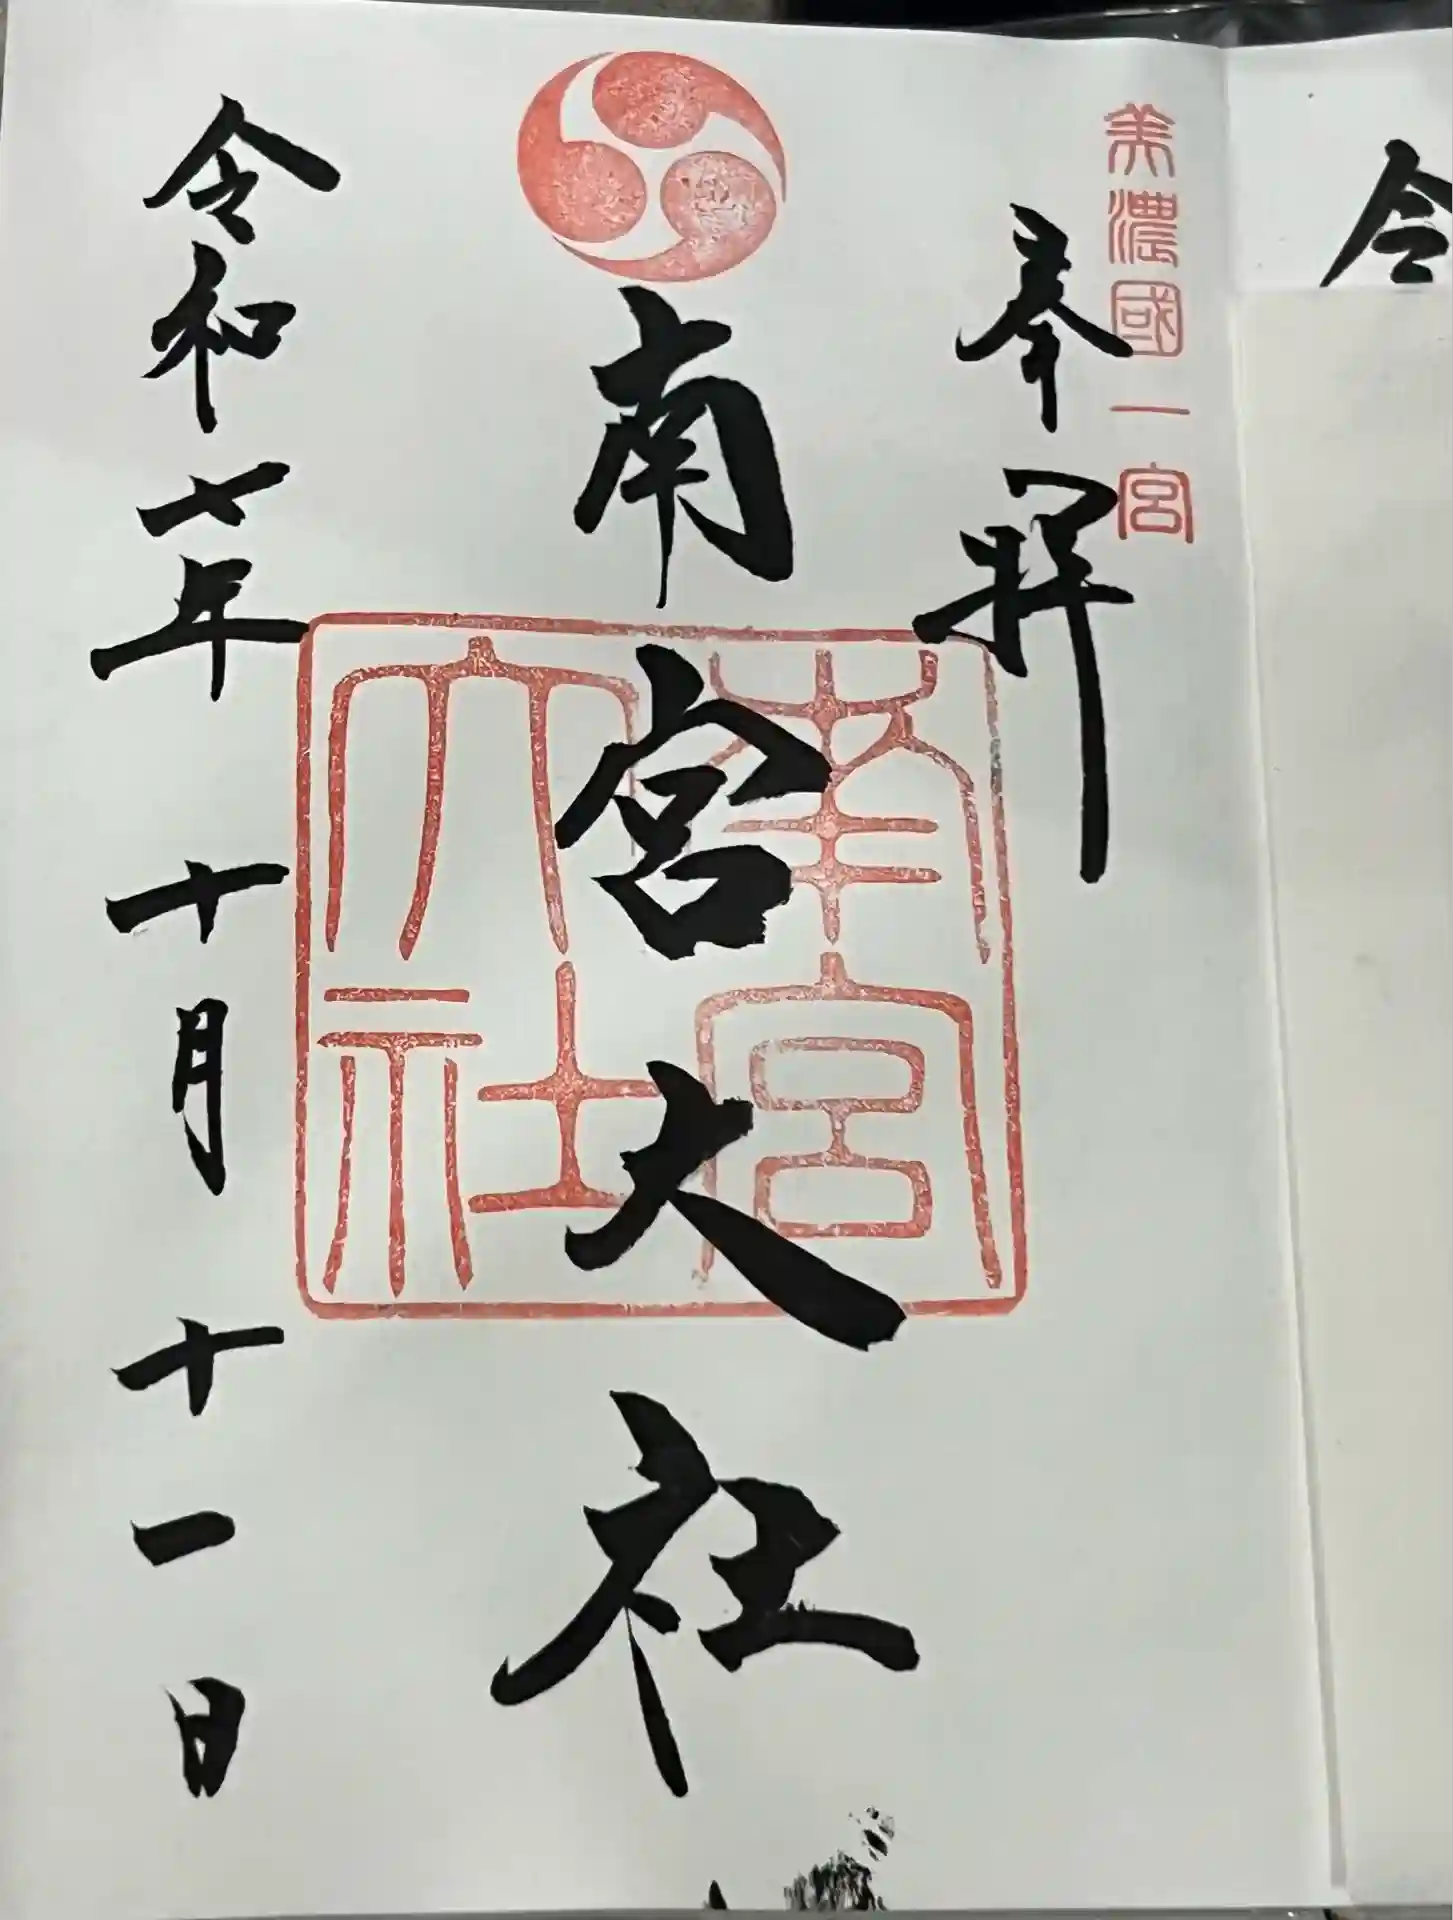 令
美濃國一宮
奉拝
南宮大社
南宮
大社
令和七年十月十一日